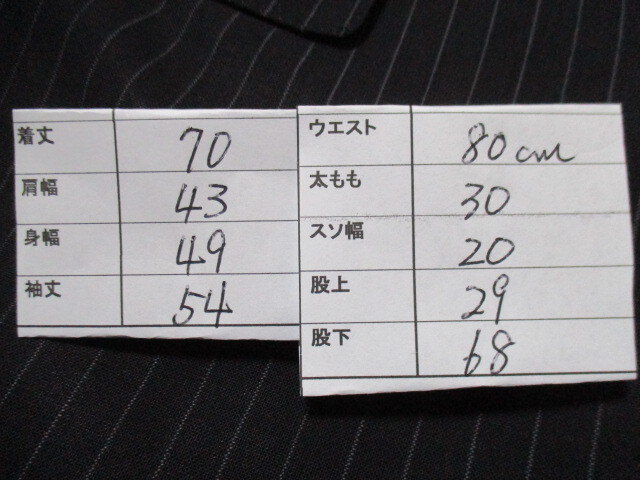 着丈 70
肩幅 43
身幅 49
袖丈 54
ウエスト 80cm
太もも 30
スソ幅 20
股上 29
股下 68